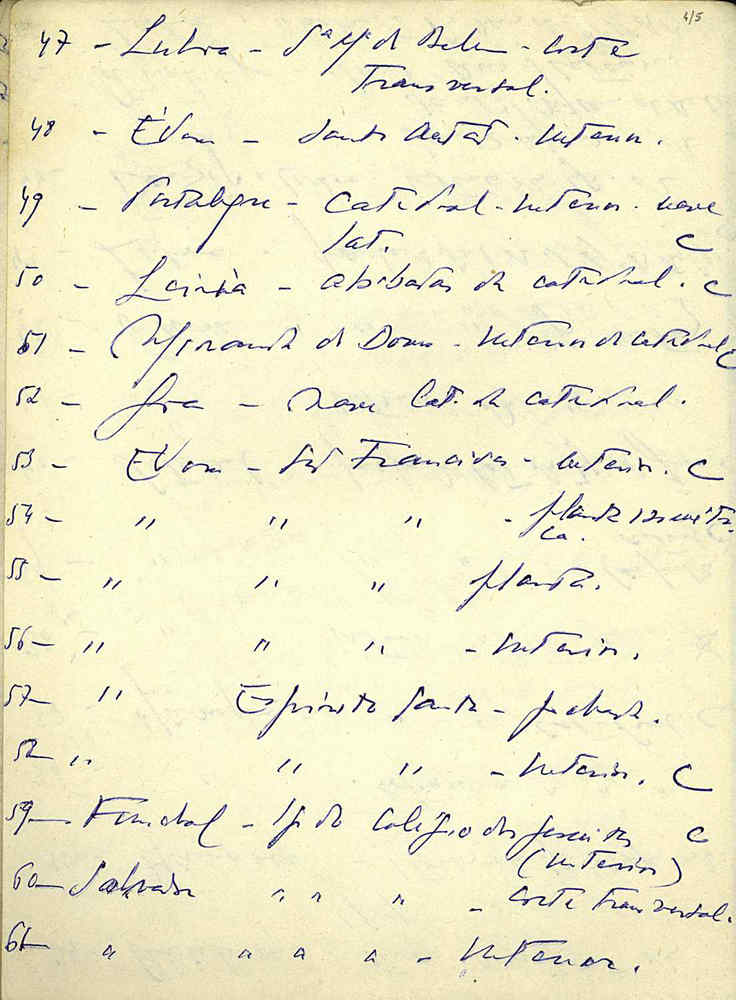 4/5
47 - Lisboa - Sta Mª de Belem - Corte
Transversal.
48 - Évora - Santo Antão - Interior.
49 - Portalegre - Catedral - Interior - nave
lat. C
50 - Leiria - abobadas da catedral. C
51 - Miranda do Douro - Interior da catedral C
52 - Goa - nave lat. da catedral.
53 - Évora - São Francisco - Interior. C
54 - " " " - planta isométri-
ca.
55 - " " " planta.
56 - " " " - Interior.
57 - " Espirito Santo - fachada.
58 " " " - Interior. C
59 - Funchal - Ig. do Colégio dos Jesuitas C
(Interior)
60 - Salvador " " " - Corte transversal.
61 - " " " " - Interior.